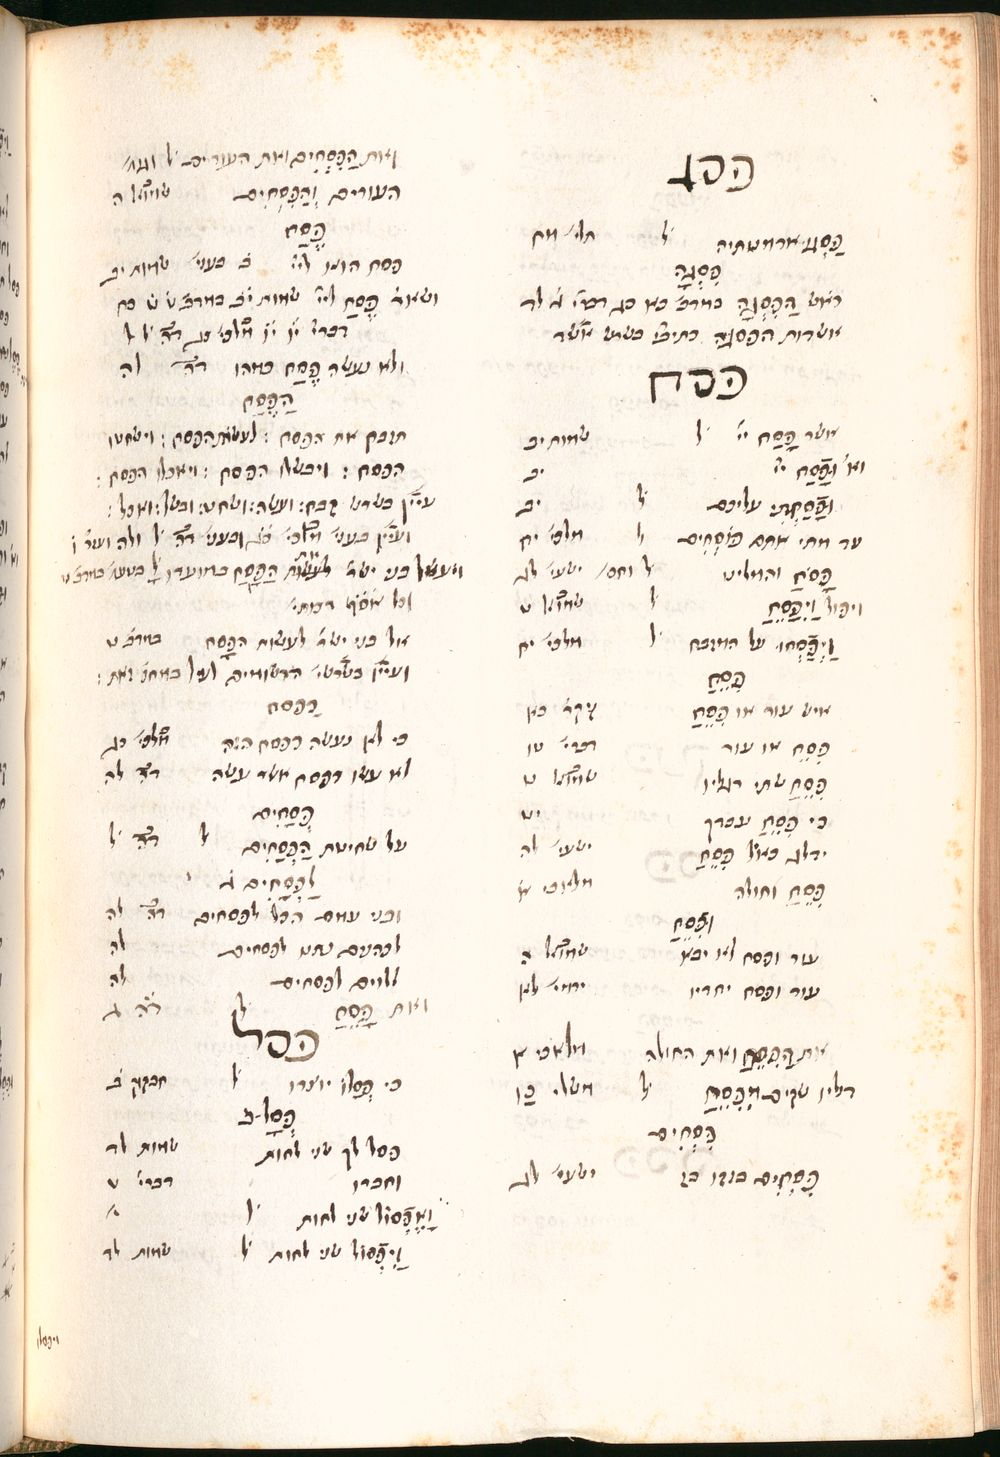 פסג
פַּסְּגוּ ארמנותיה ל׳ תלי׳ מח
פִּסְגָּה
ראש הַפִּסְגָּה במדב׳ כא כג דברי׳ ג׳ לד
אשדות הפסגה כתיב׳ בשרש אשד
פסח
אשר פָּסַח יי׳ ל׳ שמות יב
וא׳ וּפָסַח יי׳ יב
וּפָסַחְתִּי עליכם ל׳ יב
עד מתי אתם פוֹסְחִים ל׳ מלכי׳ יח
פָּסֹחַ והמליט ל׳ וחס׳ ישעי׳ לא
ויפול וַיִּפָּסֵחַ ל׳ שמואל
וַיְפַסְּחוּ על המזבח ל׳ מלכי׳ יח
פִּסֵּחַ
איש עור או פִּסֵּחַ ויקר׳ כא
פִּסֵּחַ או עור דברי׳ טו
פִּסֵּחַ שתי רגליו שמואל ט
כי פִסֵּחַ עבדך יט
ידלג כאיל פִּסֵּחַ ישעי׳ לה
פִּסֵּחַ וחולה מלאכי א׳
וּפִסֵּחַ
עור ופסח לא יבא שמואל ה
עור ופסח יחדיו ירמי׳ לא
את הַפִּסֵּחַ ואת החולה מלאכי א
דליו שקים מִפִּסֵּחַ ל׳ משלי כו
פִּסְחִים
פִּסְחִים בזזו בז ישעי׳ לג
ואת הַפִּסְחִים ואת העורים ל׳
העורים וְהַפִּסְחִים שמואל ה
פֶּסַח
פסח הוא ליי׳ ב׳ בעני׳ שמות יב
ושאר׳ פֶּסַח ליי׳ שמות יב במדב׳ ט׳ ט׳ כח
דברי׳ יו׳ יו׳ מלכי׳ כג דה׳ ל׳ ל
ולא נעשה פֶסַח כמהו דה׳ לה
הַפֶּסַח
חוקת הפסח : לעשות הפסח : ושחטו
הפסח : ויבשלו הפסח : ויאכלו הפסח :
עיין בשרש זבח : ועשה : ושחט : ובשל : ואכל :
ועיין בעני׳ מלכי׳ כג ובעני׳ דה׳ ל׳ ולה ועזר׳ ו׳
ויעשו בני ישר׳ לעשות הַפָּסַח במועדו ל׳ בטעם במדב׳ ט
וכל אסף דכותי׳
אל בני ישר׳ לעשות הפָּסַח במדב׳ ט
ועיין בשרשי׳ הרשומים לעיל במחב׳ זאת :
כפסח
כי לא נעשה כפסח הזה מלכי׳ כג
לא עשו כפסח אשר עשה דה׳ לה
פְּסָחִים
על שחיטת הַפְּסָחִים ל׳ דה׳ ל׳
לַפְּסָחִים ג׳
ובני עמים הכל לפסחים דה׳ לה
לכהנים נתנו לפסחים לה
ללוים לפסחים לה
ואת פָּסֵחַ ל׳ דה׳ ג
פסל
כי פְסָלוֹ יוצרו ל׳ חבקוק ב׳
פְּסָל-ב׳
פסל לך שני לחות שמות לד
וחברו דברי׳
וָאֶפְסֹל שני לחות ל׳ י׳
וַיִּפְסֹל שני לחות ל׳ שמות לד
ויפסלו